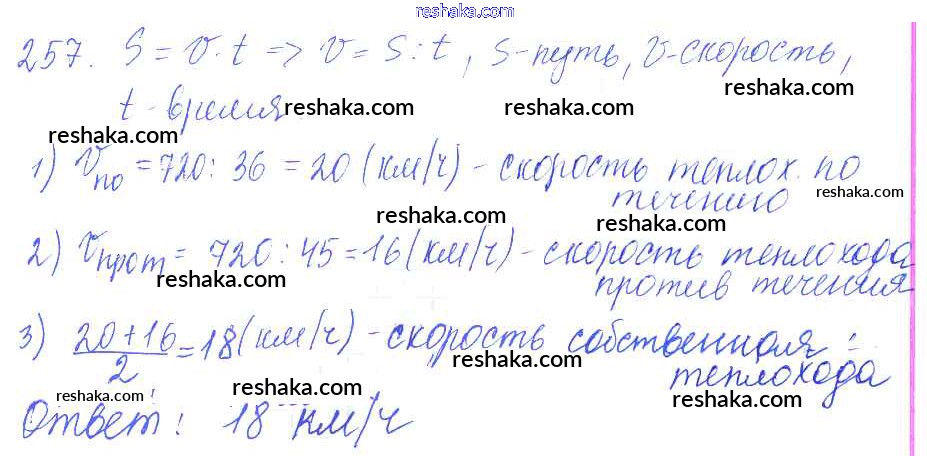 reshaka.com
257. S = v · t => v = S : t, S-путь, v-скорость,
reshaka.com
t - время
reshaka.com reshaka.com
reshaka.com
1) vпо = 720 : 36 = 20 (км/ч) - скорость теплох. по
reshaka.com
течению
reshaka.com reshaka.com
2) vпрот = 720 : 45 = 16 (км/ч) - скорость теплохода
reshaka.com reshaka.com
против течения
3) 20 + 16 / 2 = 18 (км/ч) - скорость собственная
reshaka.com reshaka.com
теплохода
reshaka.com reshaka.com
Ответ: 18 км/ч